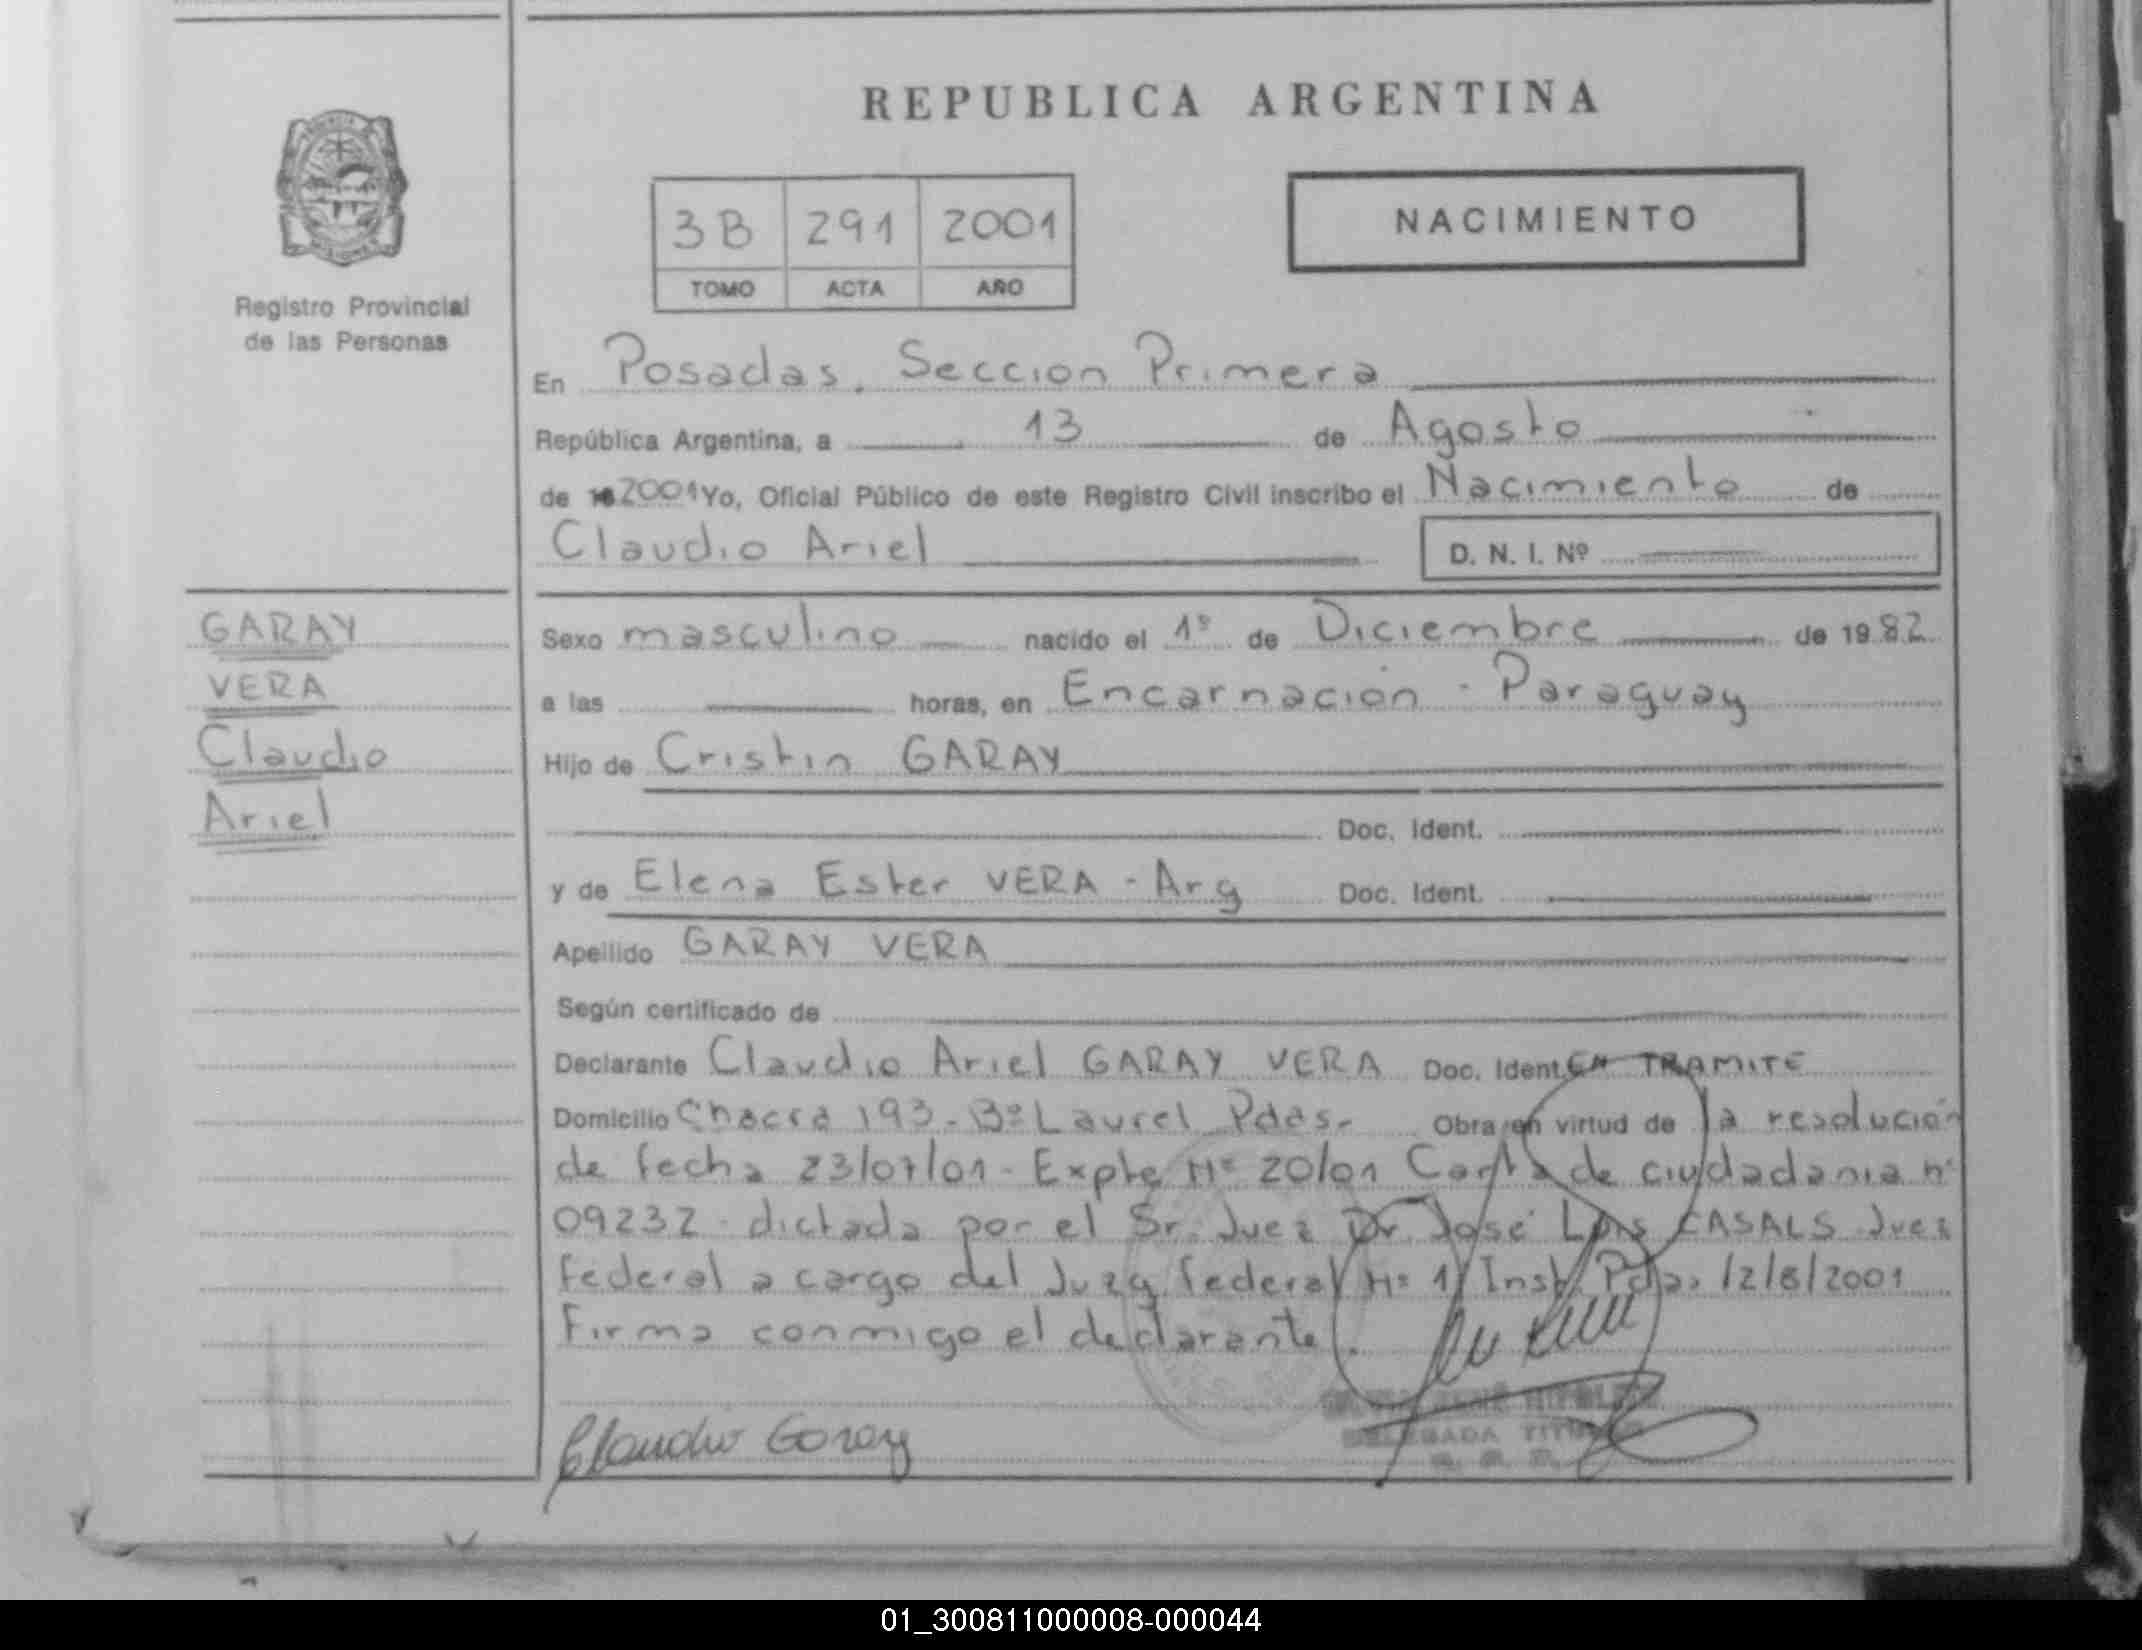 REPUBLICA ARGENTINA
3B 291 2001
TOMO ACTA AÑO
NACIMIENTO
Registro Provincial
de las Personas
En Posadas, Seccion Primera
República Argentina, a 13 de Agosto
de 2001 Yo, Oficial Público de este Registro Civil inscribo el Nacimiento de
Claudio Ariel D. N. I. Nº
GARAY
VERA
Claudio
Ariel
Sexo masculino nacido el 1º de Diciembre de 1982
a las horas, en Encarnación - Paraguay
Hijo de Cristin GARAY
Doc. Ident.
y de Elena Ester VERA - Arg Doc. Ident.
Apellido GARAY VERA
Según certificado de
Declarante Claudio Ariel GARAY VERA Doc. Ident. EN TRAMITE
Domicilio Chacra 193 - Bº Laurel Pdas. Obra en virtud de la resolución
de fecha 23/07/01 - Expte Nº 20/01 Carta de ciudadania nº
09232 - dictada por el Sr. Juez Dr. José Luis CASALS Juez
Federal a cargo del Juzg federal Nº 1 Inst Pdas 12/8/2001
Firma conmigo el declarante.
Claudio Garay
DELEGADA TITULAR
01_300811000008-000044